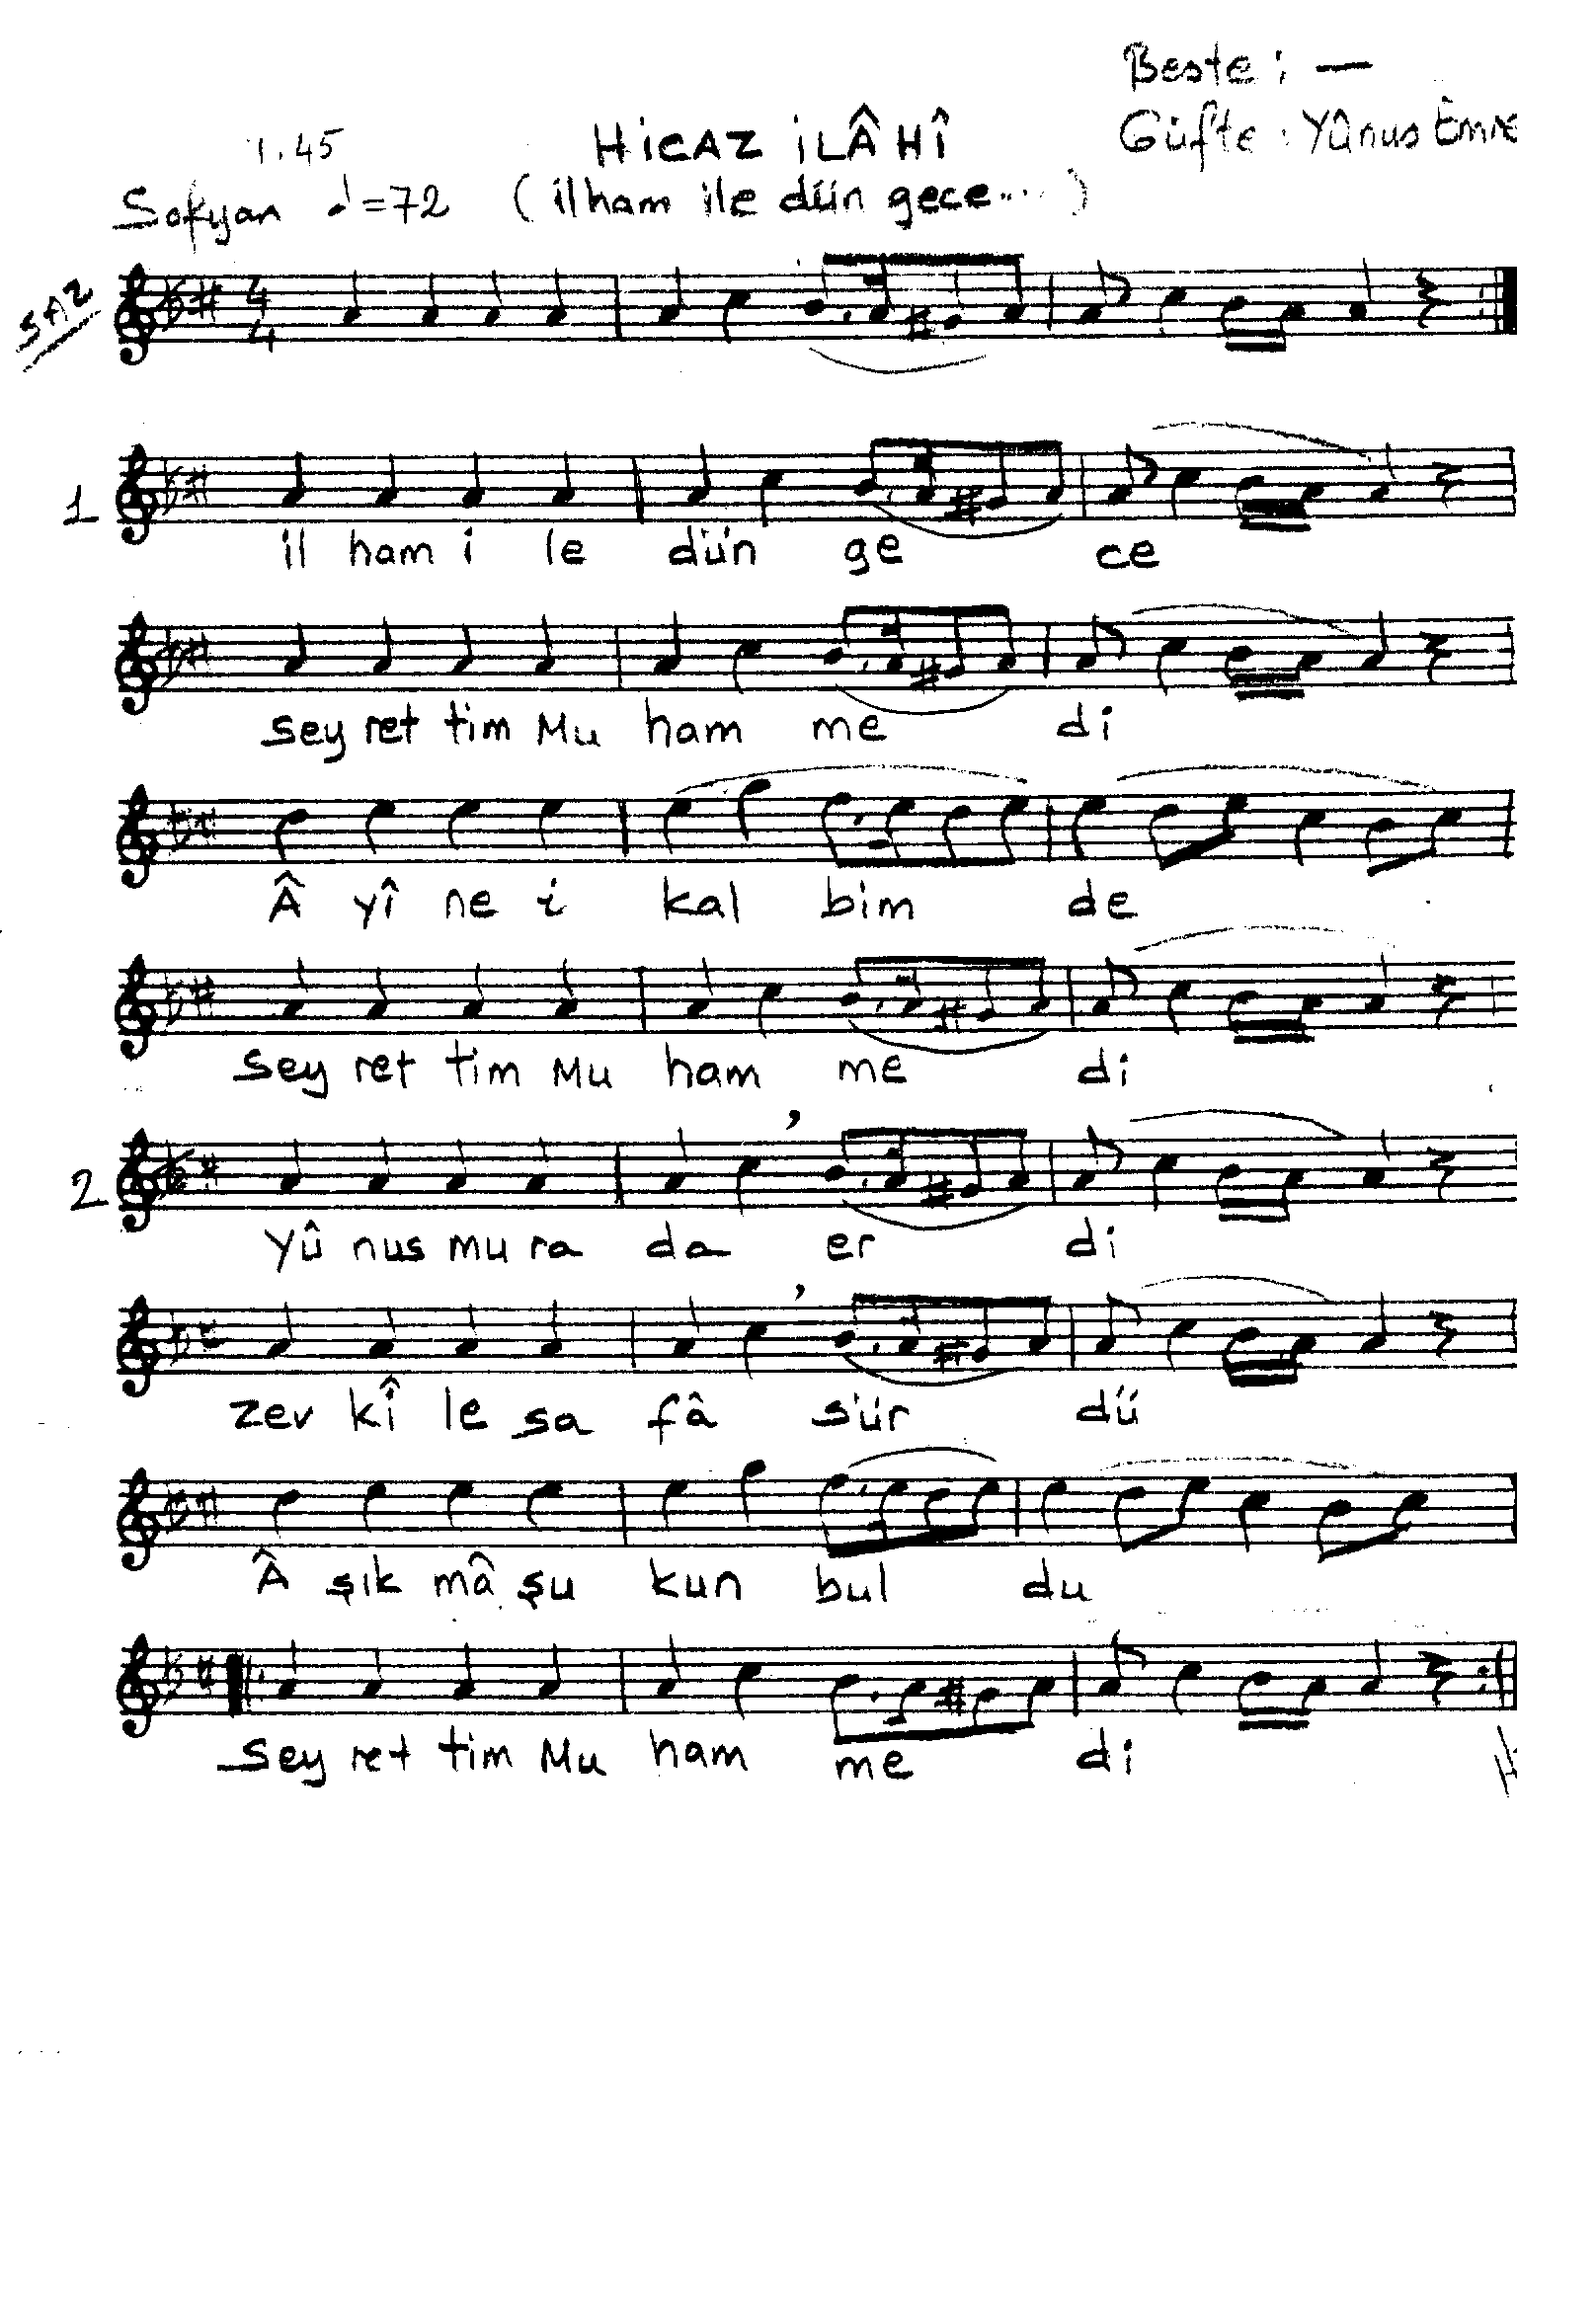 Beste : —
Güfte : Yûnus Emre
HİCAZ İLÂHÎ
Sofyan ♩=72 (ilham ile dün gece...)
SAZ
4/4
1
il ham i le dün ge ce
sey ret tim Mu ham me di
 yî ne i kal bim de
sey ret tim Mu ham me di
2
Yû nus mu ra da er di
zev kî le sa fâ sür dü
 şık mâ şu kun bul du
sey ret tim Mu ham me di